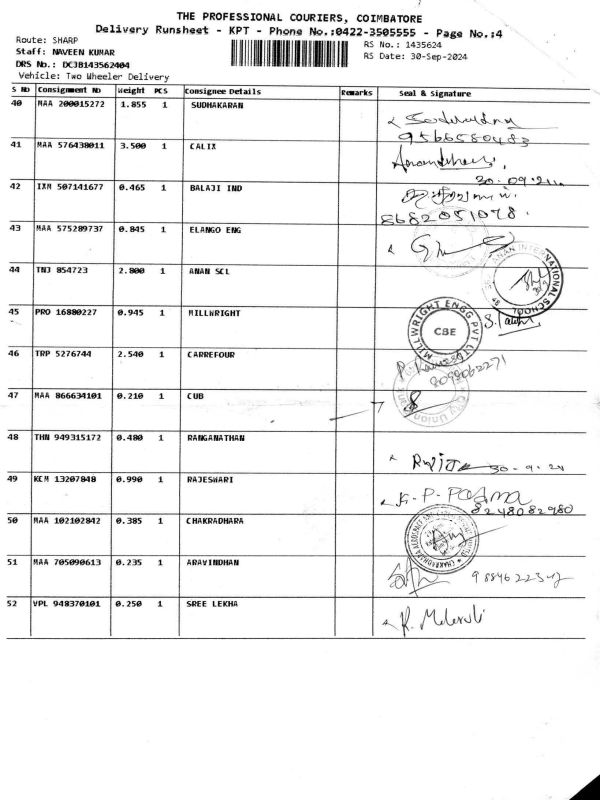 THE PROFESSIONAL COURIERS, COIMBATORE
Delivery Runsheet - KPT - Phone No.:0422-3505555 - Page No.:4
Route: SHARP
RS No.: 1435624
Staff: NAVEEN KUMAR
RS Date: 30-Sep-2024
DRS No.: DCJB143562404
Vehicle: Two Wheeler Delivery
S No Consignment No Weight PCS Consignee Details Remarks Seal & Signature
40 MAA 200015272 1.855 1 SUDHAKARAN
9566580483
41 MAA 576438011 3.500 1 CALIX
30.09.24
42 IXM 507141677 0.465 1 BALAJI IND
8682051078.
43 MAA 575289737 0.845 1 ELANGO ENG
44 TNJ 854723 2.800 1 ANAN SCL
ANAN INTERNATIONAL SCHOOL
45 PRO 16880227 0.945 1 MILLWRIGHT
MILLWRIGHT ENGG PVT LTD
CBE
46 TRP 5276744 2.540 1 CARREFOUR
8098062271
47 MAA 866634101 0.210 1 CUB
City Union
48 THN 949315172 0.480 1 RANGANATHAN
30-9-24
49 KCM 13207848 0.990 1 RAJESWARI
K-P-Padma
8248082980
50 MAA 102102842 0.385 1 CHAKRADHARA
51 MAA 705090613 0.235 1 ARAVINDHAN
52 VPL 948370101 0.250 1 SREE LEKHA